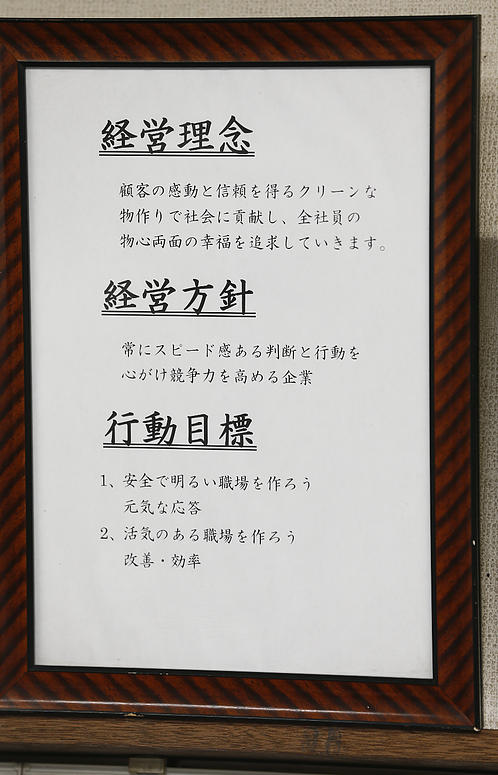 経営理念
顧客の感動と信頼を得るクリーンな
物作りで社会に貢献し、全社員の
物心両面の幸福を追求していきます。
経営方針
常にスピード感ある判断と行動を
心がけ競争力を高める企業
行動目標
1、安全で明るい職場を作ろう
元気な応答
2、活気のある職場を作ろう
改善・効率